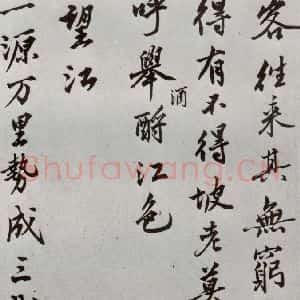 客往来其無窮
得有不得坡老尊
呼舉酹江色
酒
望江
一源万里勢成三
Shufawang.CN